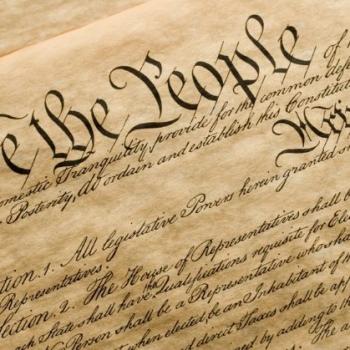 We the People of
Domestic Tranquility, provide for the common defe
Posterity, do ordain and establish this Constitut
ction. 1. All legislative Powers herein granted s
Representatives
Section. 2. The House of Representatives shall be
ach State shall have the Qualifications requisite for Elec
No Person shall be a Representative who sha
not, when elected, be an Inhabitant of t
and direct Taxes shall be ap
by adding to th